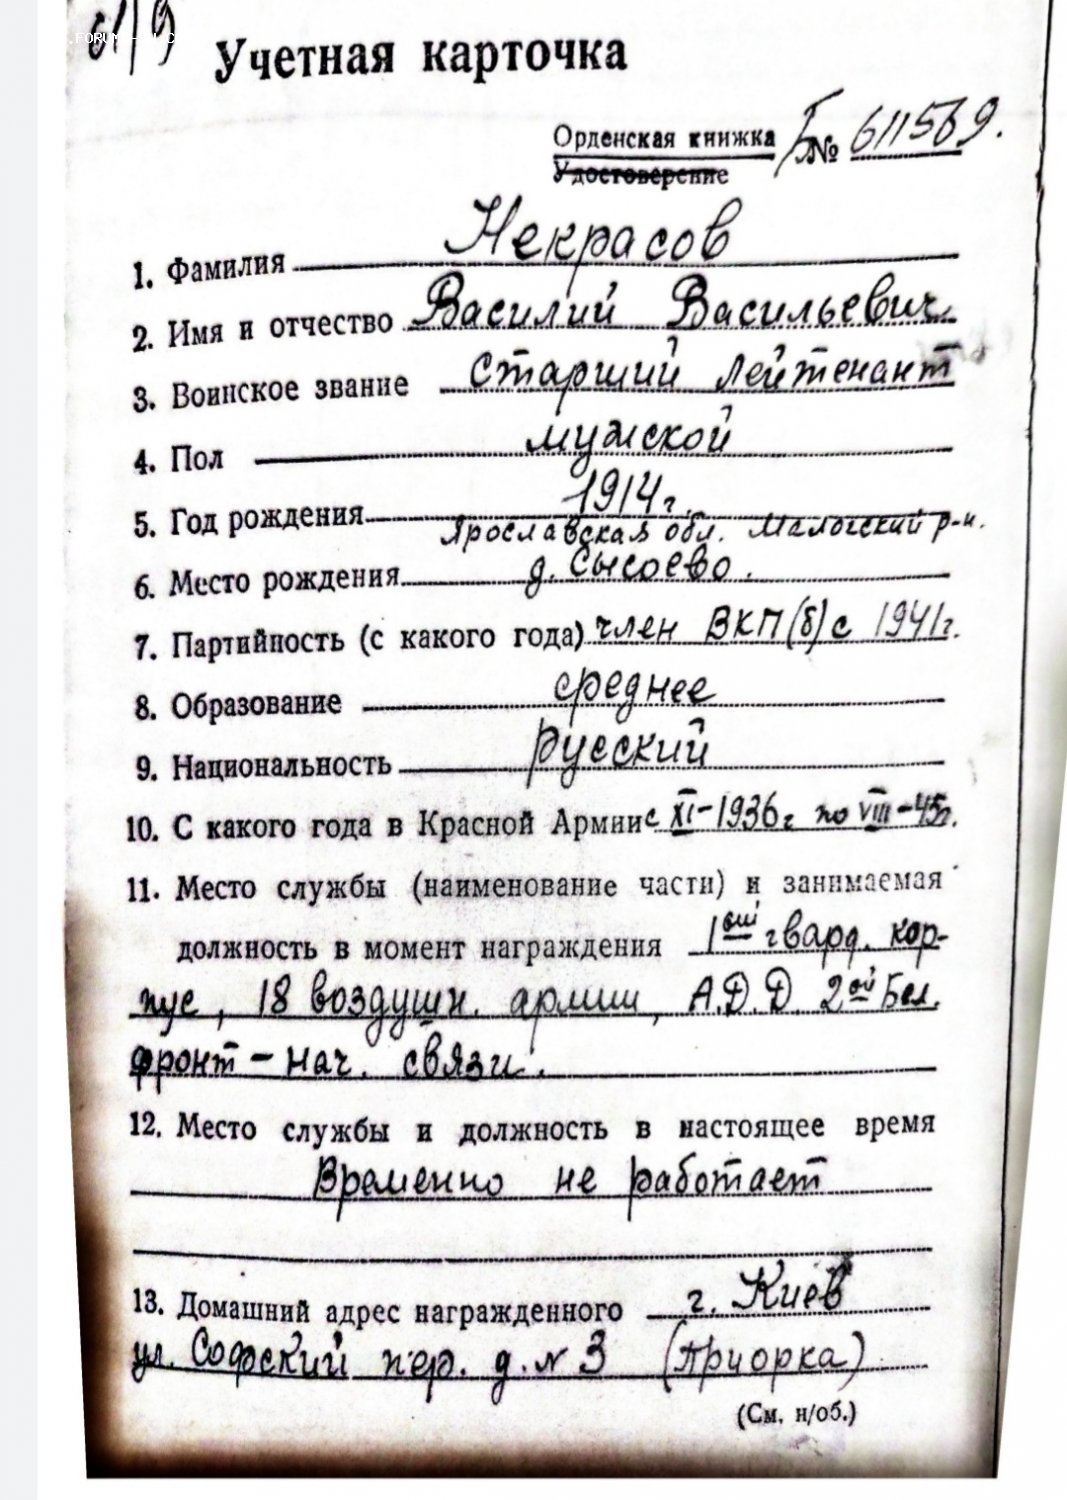 Учетная карточка
Орденская книжка № 611569.
Удостоверение
1. Фамилия Некрасов
2. Имя и отчество Василий Васильевич
3. Воинское звание старший лейтенант
4. Пол мужской
5. Год рождения 1914 г.
Ярославская обл. Мологский р-н.
6. Место рождения д. Сысоево.
7. Партийность (с какого года) член ВКП(б) с 1941 г.
8. Образование среднее
9. Национальность русский
10. С какого года в Красной Армии с XI-1936 г по VIII-45 г.
11. Место службы (наименование части) и занимаемая
должность в момент награждения 1ый гвард. кор-
пус, 18 воздушн. армии, А.Д.Д. 2ой Бел.
фронт – нач. связи.
12. Место службы и должность в настоящее время
Временно не работает
13. Домашний адрес награжденного г. Киев
ул. Софский пер. д. N 3 (Приорка)
(См. н/об.)